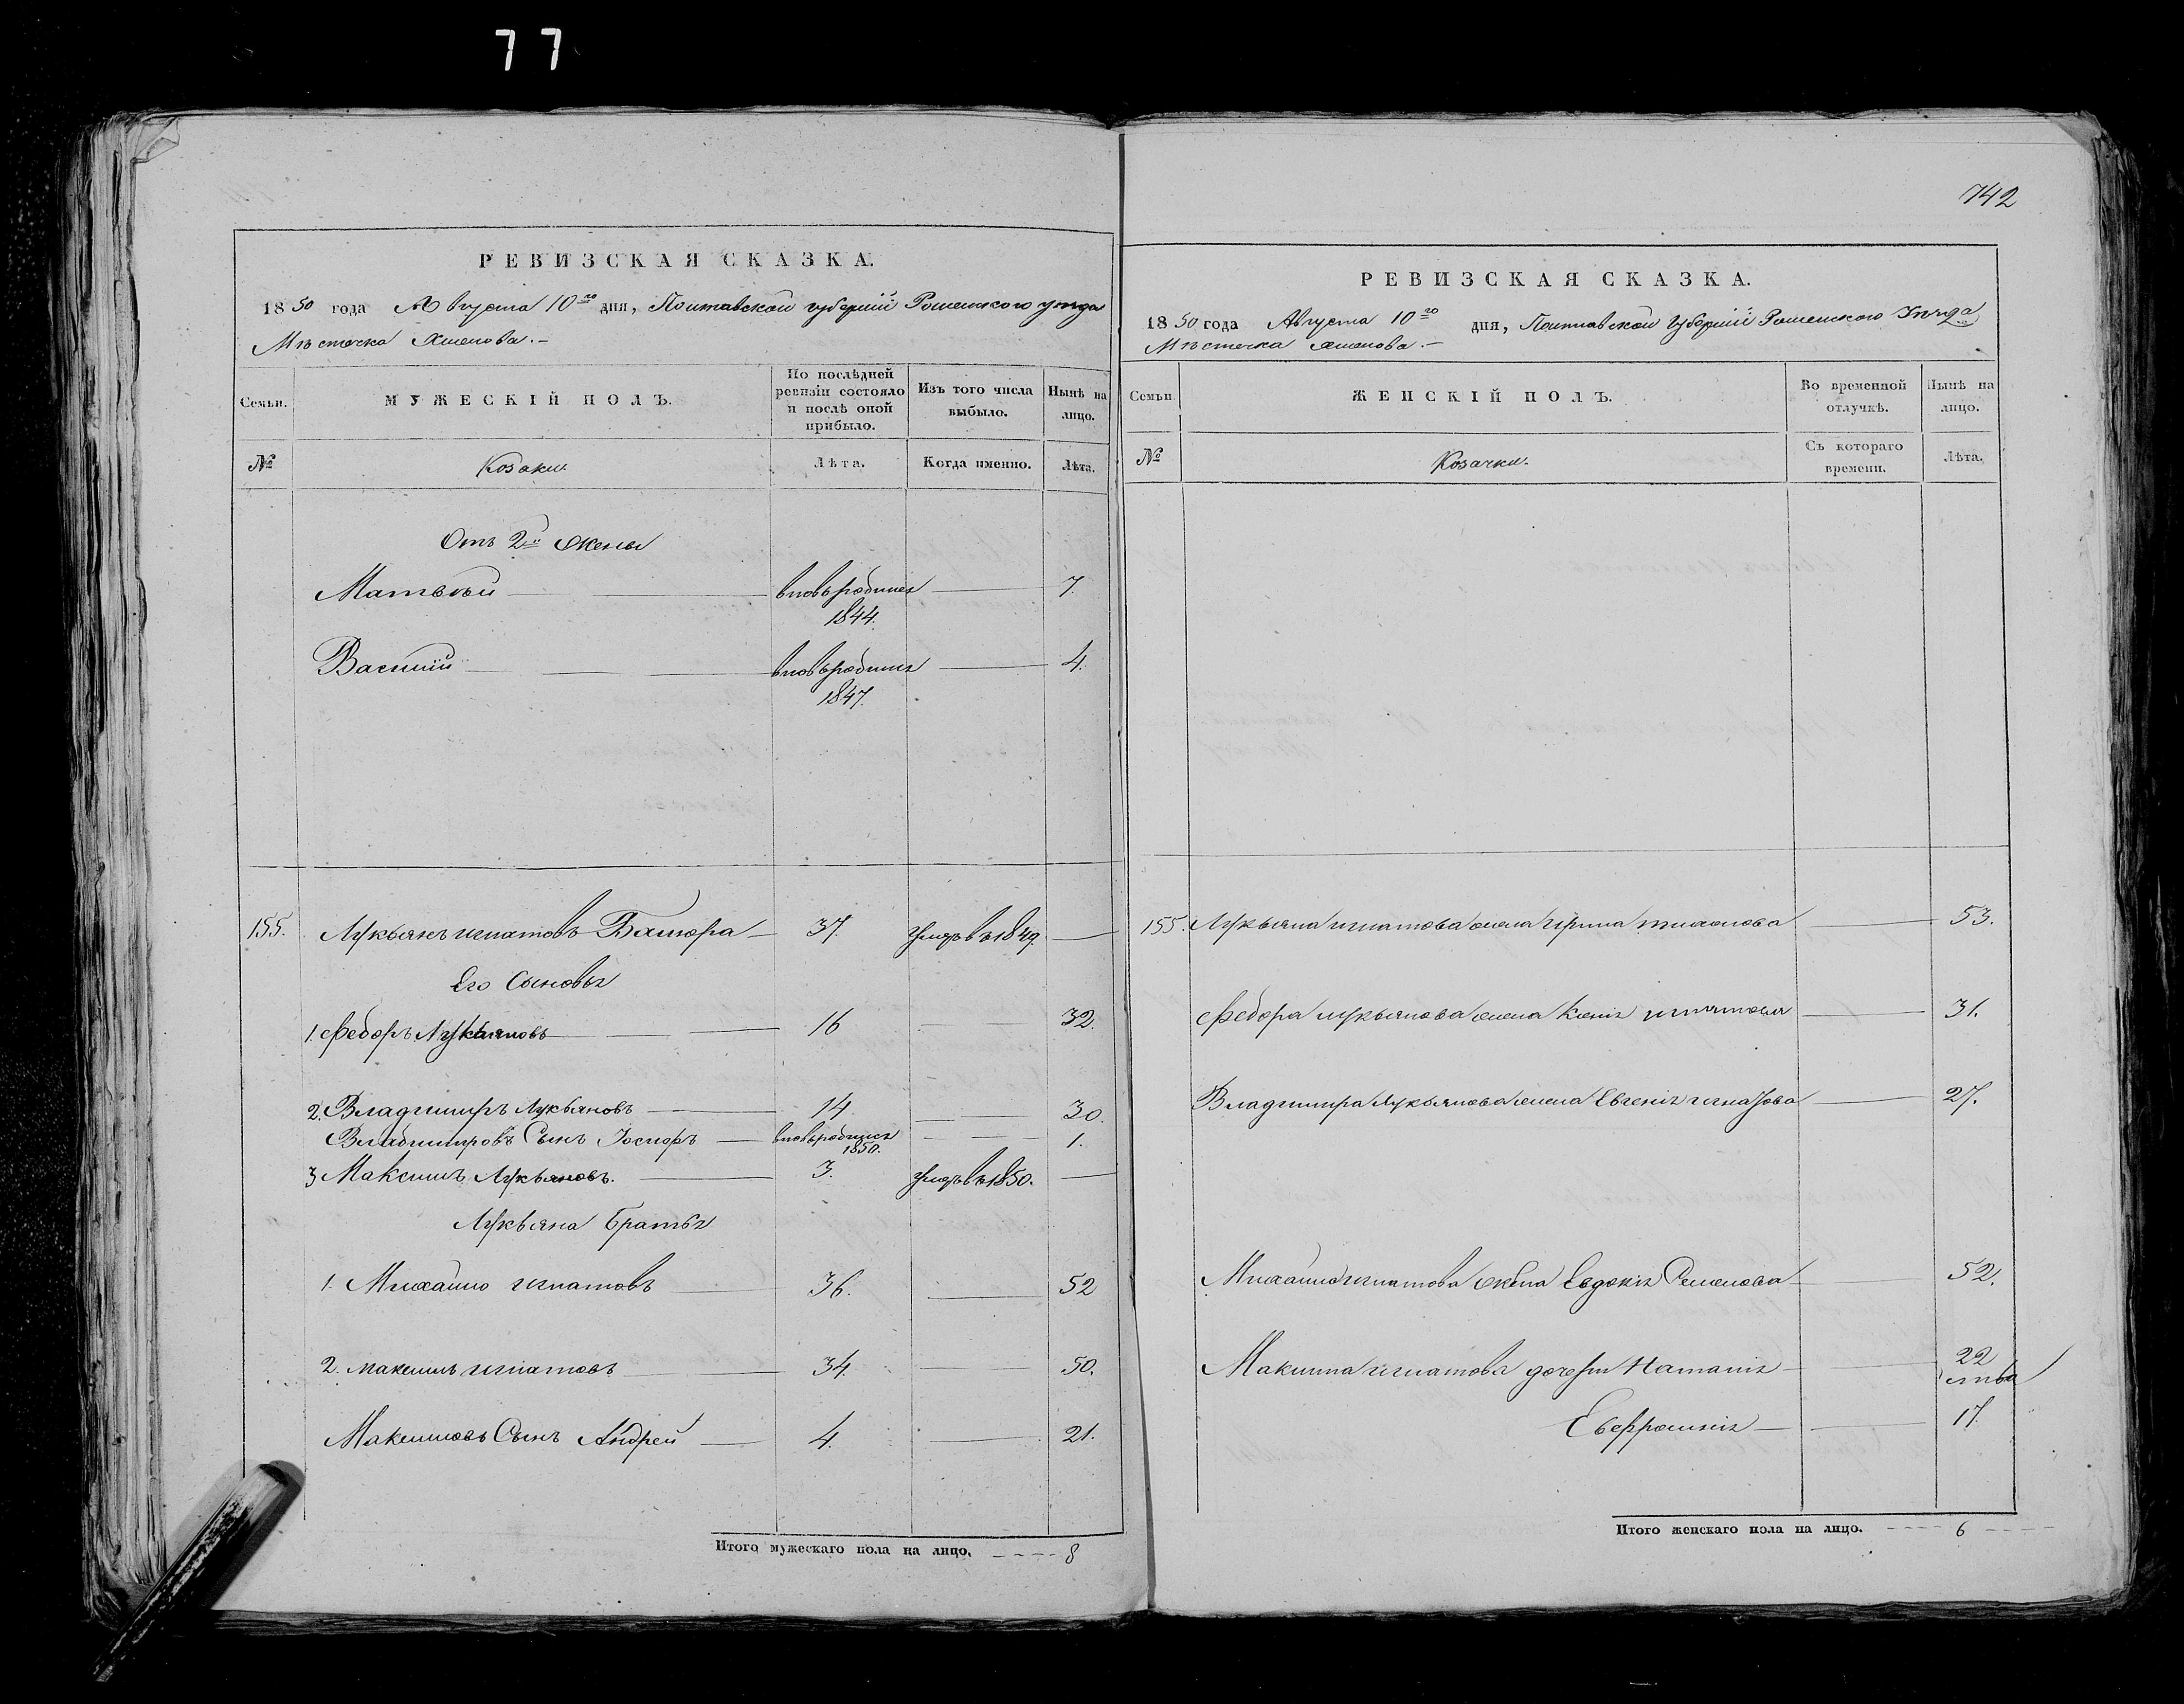 77
742
РЕВИЗСКАЯ СКАЗКА.
1850 года Августа 10го дня, Полтавской губерніи Роменского уезда
Мѣстечка Хмелова.-
Семьи.
МУЖЕСКІЙ ПОЛЪ.
По послѣдней ревизіи состояло и послѣ оной прибыло.
Изъ того числа выбыло.
Нынѣ на лицо.
№
Козаки.
Лѣта.
Когда именно.
Лѣта.
Отъ 2й жены
Матвѣй 7.
вновьродился
1844.
Василій 4.
вновьродился
1847.
155. Лукьянъ игнатовъ 37. умеръ въ 1849
Его Сыновья
1. Федоръ Лукьяновъ 16 32.
2. Владимиръ Лукьяновъ 14 30.
Владимировъ Сынъ вновьродился 1850. 1.
3 Максимъ Лукьяновъ. 3. умеръ въ 1850.
Лукьяна братья
1. Михайло игнатовъ 36. 52
2. максимъ игнатовъ 34. 50.
Максимовъ Сынъ Андрей 4. 21.
Итого мужескаго пола на лицо. 8
РЕВИЗСКАЯ СКАЗКА.
1850 года Августа 10го дня, Полтавской Губерніи Роменского Уѣзда
Мѣстечка Хмелова.-
Семьи.
ЖЕНСКІЙ ПОЛЪ.
Во временной отлучкѣ.
Нынѣ на лицо.
№
Козачки.
Съ котораго времени.
Лѣта.
155. Лукьяна игнатова жена Ирина 53.
Федора лукьянова жена 31.
Владимира Лукьянова жена Евгенія 27.
Михайла игнатова жена Евдокія Семенова 52.
Максима игнатова дочери Наталія 22
Евфросинія 17.
Итого женскаго пола на лицо. 6